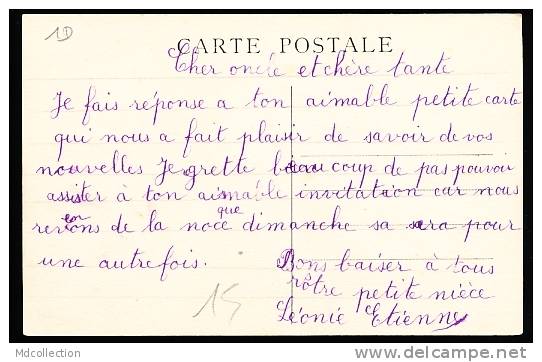 1D
CARTE POSTALE
Cher oncle et chère tante
Je fais réponse a ton aimable petite carte
qui nous a fait plaisir de savoir de vos
nouvelles Je grette beau coup de pas pouvoir
assister à ton aimable invitation car nous
en
revons de la noce que dimanche sa sera pour
une autre fois.
Bons baiser à tous
Vôtre petite nièce
Léonie Etienne
15
Mdcollection
http://www.delcampe.net